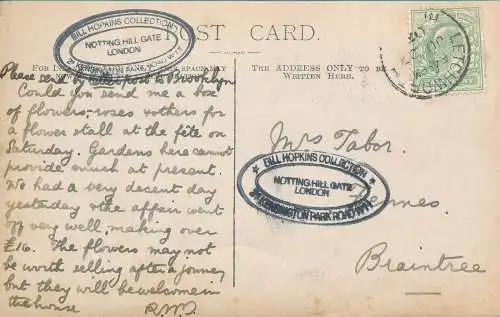 POST CARD.
BILL HOPKINS COLLECTION
NOTTING HILL GATE
LONDON
KENSINGTON PARK ROAD W11
THE ADDRESS ONLY TO BE
WRITTEN HERE.
Please send by letter post to Brooklyn
Could you send me a box
of flowers, roses & others for
a flower stall at the fête on
Saturday. Gardens here cannot
provide much at present.
We had a very decent day
yesterday & the affair went
off very well, making over
£16. The flowers may not
be worth selling after a journey
but they will be welcome in
the house
Mrs Tabor
BILL HOPKINS COLLECTION
NOTTING HILL GATE
LONDON
KENSINGTON PARK ROAD W11
Fennes
Braintree